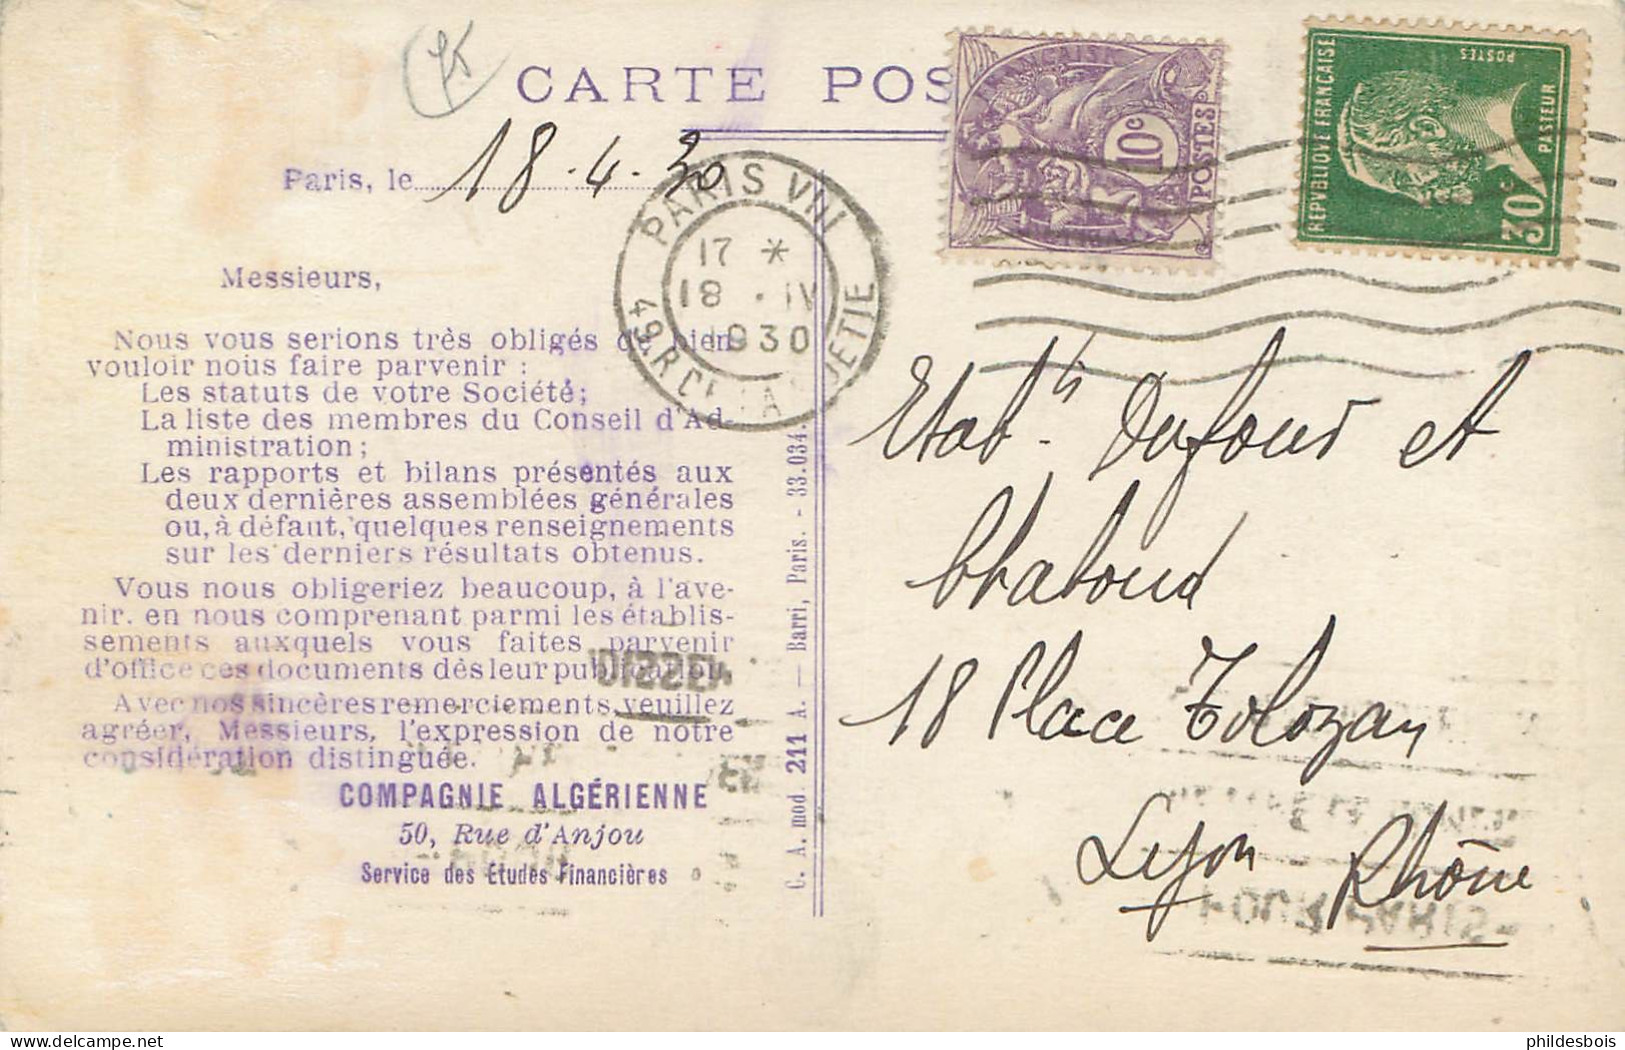 CARTE POS
Paris, le 18-4-30
Messieurs,
Nous vous serions très obligés de bien
vouloir nous faire parvenir :
Les statuts de votre Société;
La liste des membres du Conseil d'Ad-
ministration;
Les rapports et bilans présentés aux
deux dernières assemblées générales
ou, à défaut, quelques renseignements
sur les derniers résultats obtenus.
Vous nous obligeriez beaucoup, à l'ave-
nir, en nous comprenant parmi les établis-
sements auxquels vous faites parvenir
d'office ces documents dès leur publication.
Avec nos sincères remerciements, veuillez
agréer, Messieurs, l'expression de notre
considération distinguée.
COMPAGNIE ALGÉRIENNE
50, Rue d'Anjou
Service des Études Financières
C. A. mod. 211 A. — Barri, Paris. - 33.034.
PARIS VIII
17 *
18 . IV
1930
49. R
10c
POSTES
REPVBLIQVE FRANCAISE
POSTES
PASTEUR
30c
Etabts Dufour et
Chaboud
18 Place Tolozan
Lyon Rhône
POUR PARIS-
phildesbois